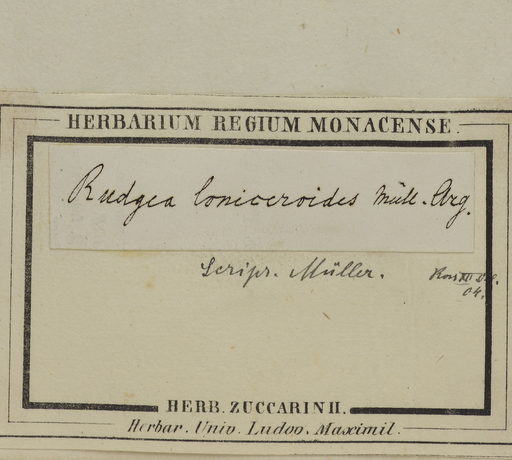 HERBARIUM REGIUM MONACENSE.
Rudgea loniceroides Müll. Arg.
Scrips. Müller.
04.
HERB. ZUCCARINII.
Herbar. Univ. Ludov. Maximil.